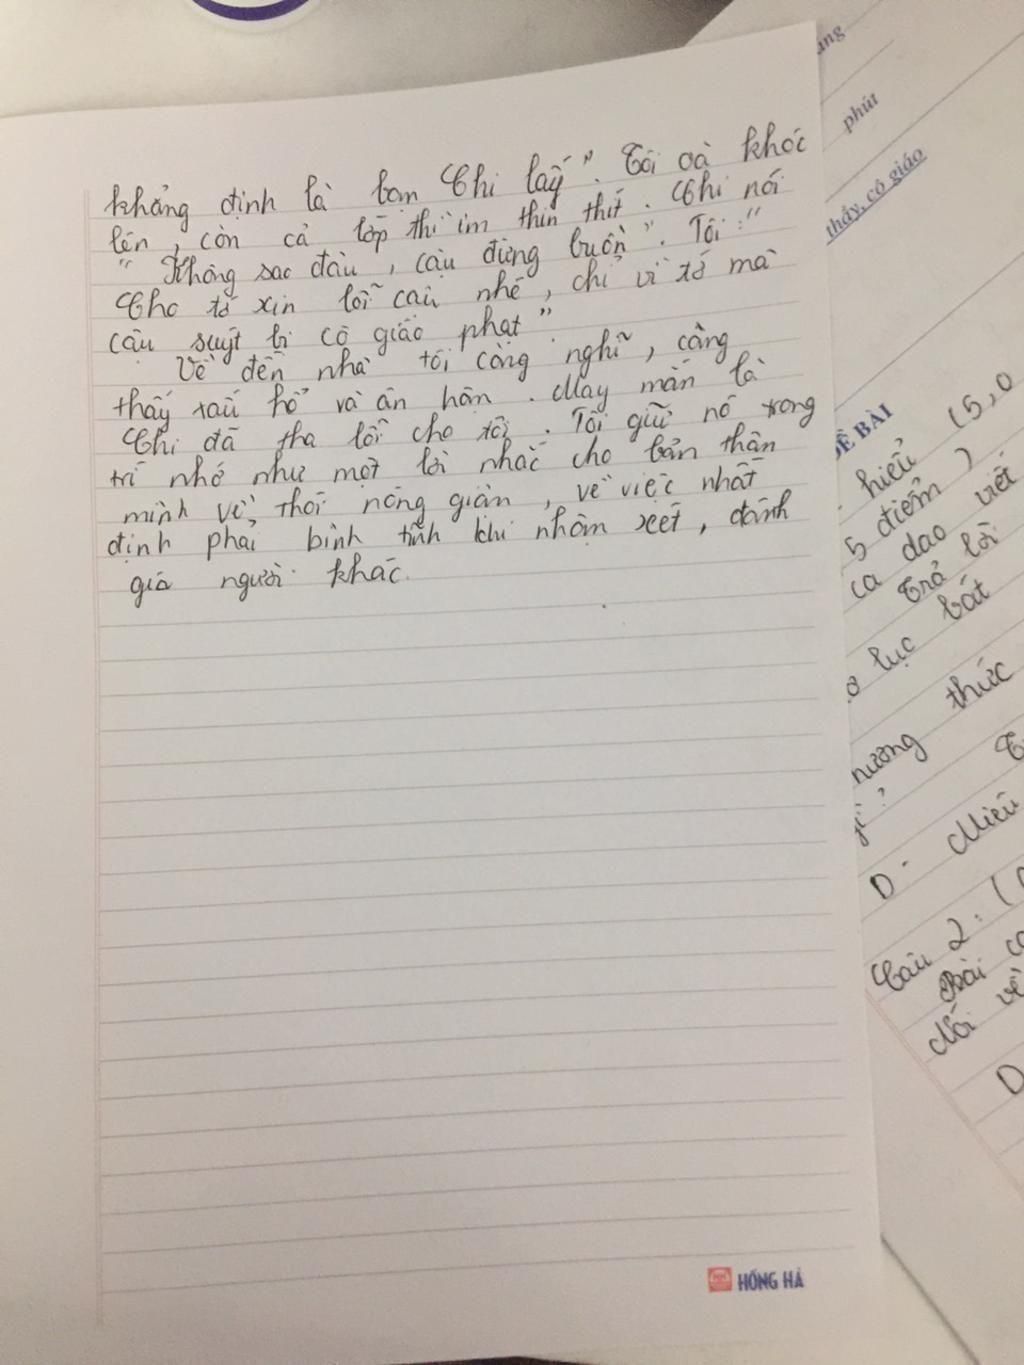 khẳng định là bạn Chi lấy". Tôi oà khóc
lên, còn cả lớp thì im thin thít. Chi nói
" Không sao đâu, cậu đừng buồn". Tôi:"
Cho tớ xin lỗi cậu nhé, chỉ vì tớ mà
cậu suýt bị cô giáo phạt"
Về đến nhà tôi càng nghĩ, càng
thấy xấu hổ và ân hận. May mắn là
Chi đã tha lỗi cho tôi. Tôi giữ nó trong
trí nhớ như một lời nhắc cho bản thân
mình về thói nóng giận, về việc nhất
định phải bình tĩnh khi nhận xét, đánh
giá người khác.
HỒNG HÀ
phút
thầy, cô giáo
ĐỀ BÀI
hiểu (5,0
5 điểm)
ca dao viết
Trả lời
lục bát
thức
D. Miêu
Câu 2: (
Bài
đối với
D